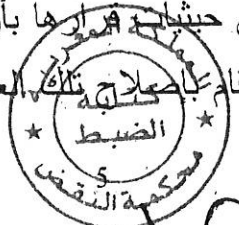 حيثيات قرارها بأن
بإصلاح تلك
المملكة المغربية
كتابة
الضبط
5
محكمة النقض